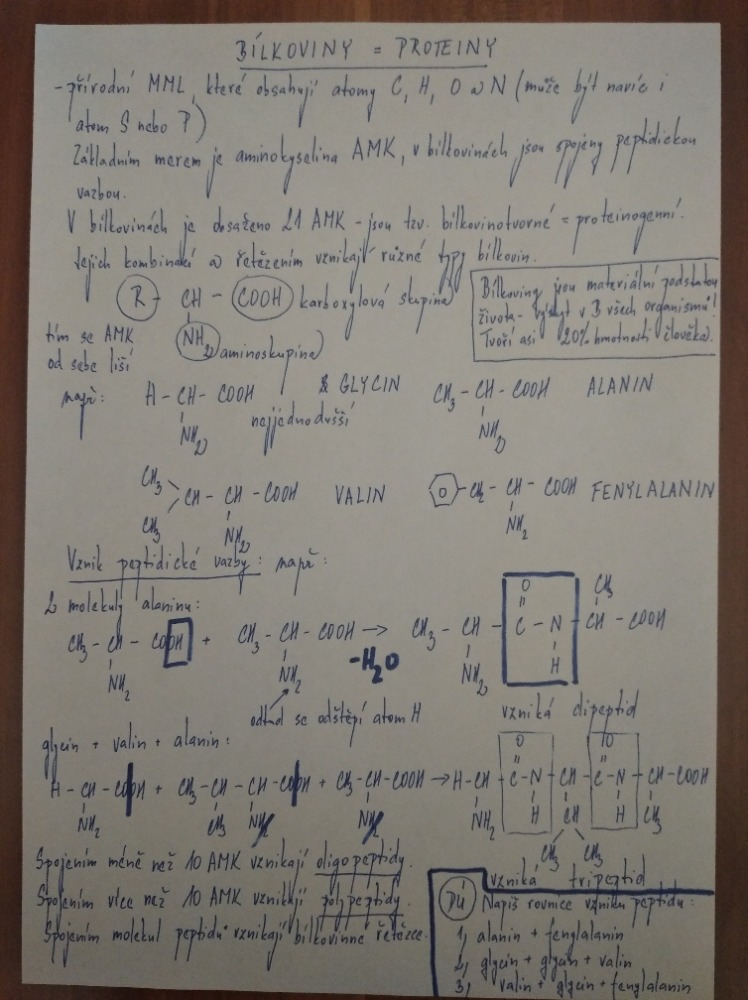 BÍLKOVINY = PROTEINY
- přírodní MML, které obsahují atomy C, H, O a N (může být navíc i
atom S nebo P)
Základním merem je aminokyselina AMK, v bílkovinách jsou spojeny peptidickou
vazbou.
V bílkovinách je obsaženo 21 AMK - jsou tzv. bílkovinotvorné = proteinogenní.
Jejich kombinací a řetězením vznikají různé typy bílkovin.
R - CH - COOH karboxylová skupina
NH2 aminoskupina
tím se AMK
od sebe liší
Bílkoviny jsou materiální podstatou
života - výskyt v B všech organismů!
Tvoří asi 20% hmotnosti člověka.
např:
H - CH - COOH GLYCIN
NH2
nejjednodušší
CH3 - CH - COOH ALANIN
NH2
CH3
CH - CH - COOH VALIN
CH3
NH2
CH2 - CH - COOH FENYLALANIN
NH2
Vznik peptidické vazby: např:
2 molekuly alaninu:
O CH3
CH3 - CH - COOH + CH3 - CH - COOH → CH3 - CH - C - N - CH - COOH
NH2 NH2 -H2O NH2 H
odtud se odštěpí atom H
vzniká dipeptid
glycin + valin + alanin:
O O
H - CH - COOH + CH3 - CH - CH - COOH + CH3 - CH - COOH → H - CH - C - N - CH - C - N - CH - COOH
NH2 CH3 NH2 NH2 NH2 H CH H CH3
CH3 CH3
vzniká tripeptid
Spojením méně než 10 AMK vznikají oligopeptidy.
Spojením více než 10 AMK vznikají polypeptidy.
Spojením molekul peptidů vznikají bílkovinné řetězce.
DÚ Napiš rovnice vzniku peptidu:
1, alanin + fenylalanin
2, glycin + glycin + valin
3, valin + glycin + fenylalanin